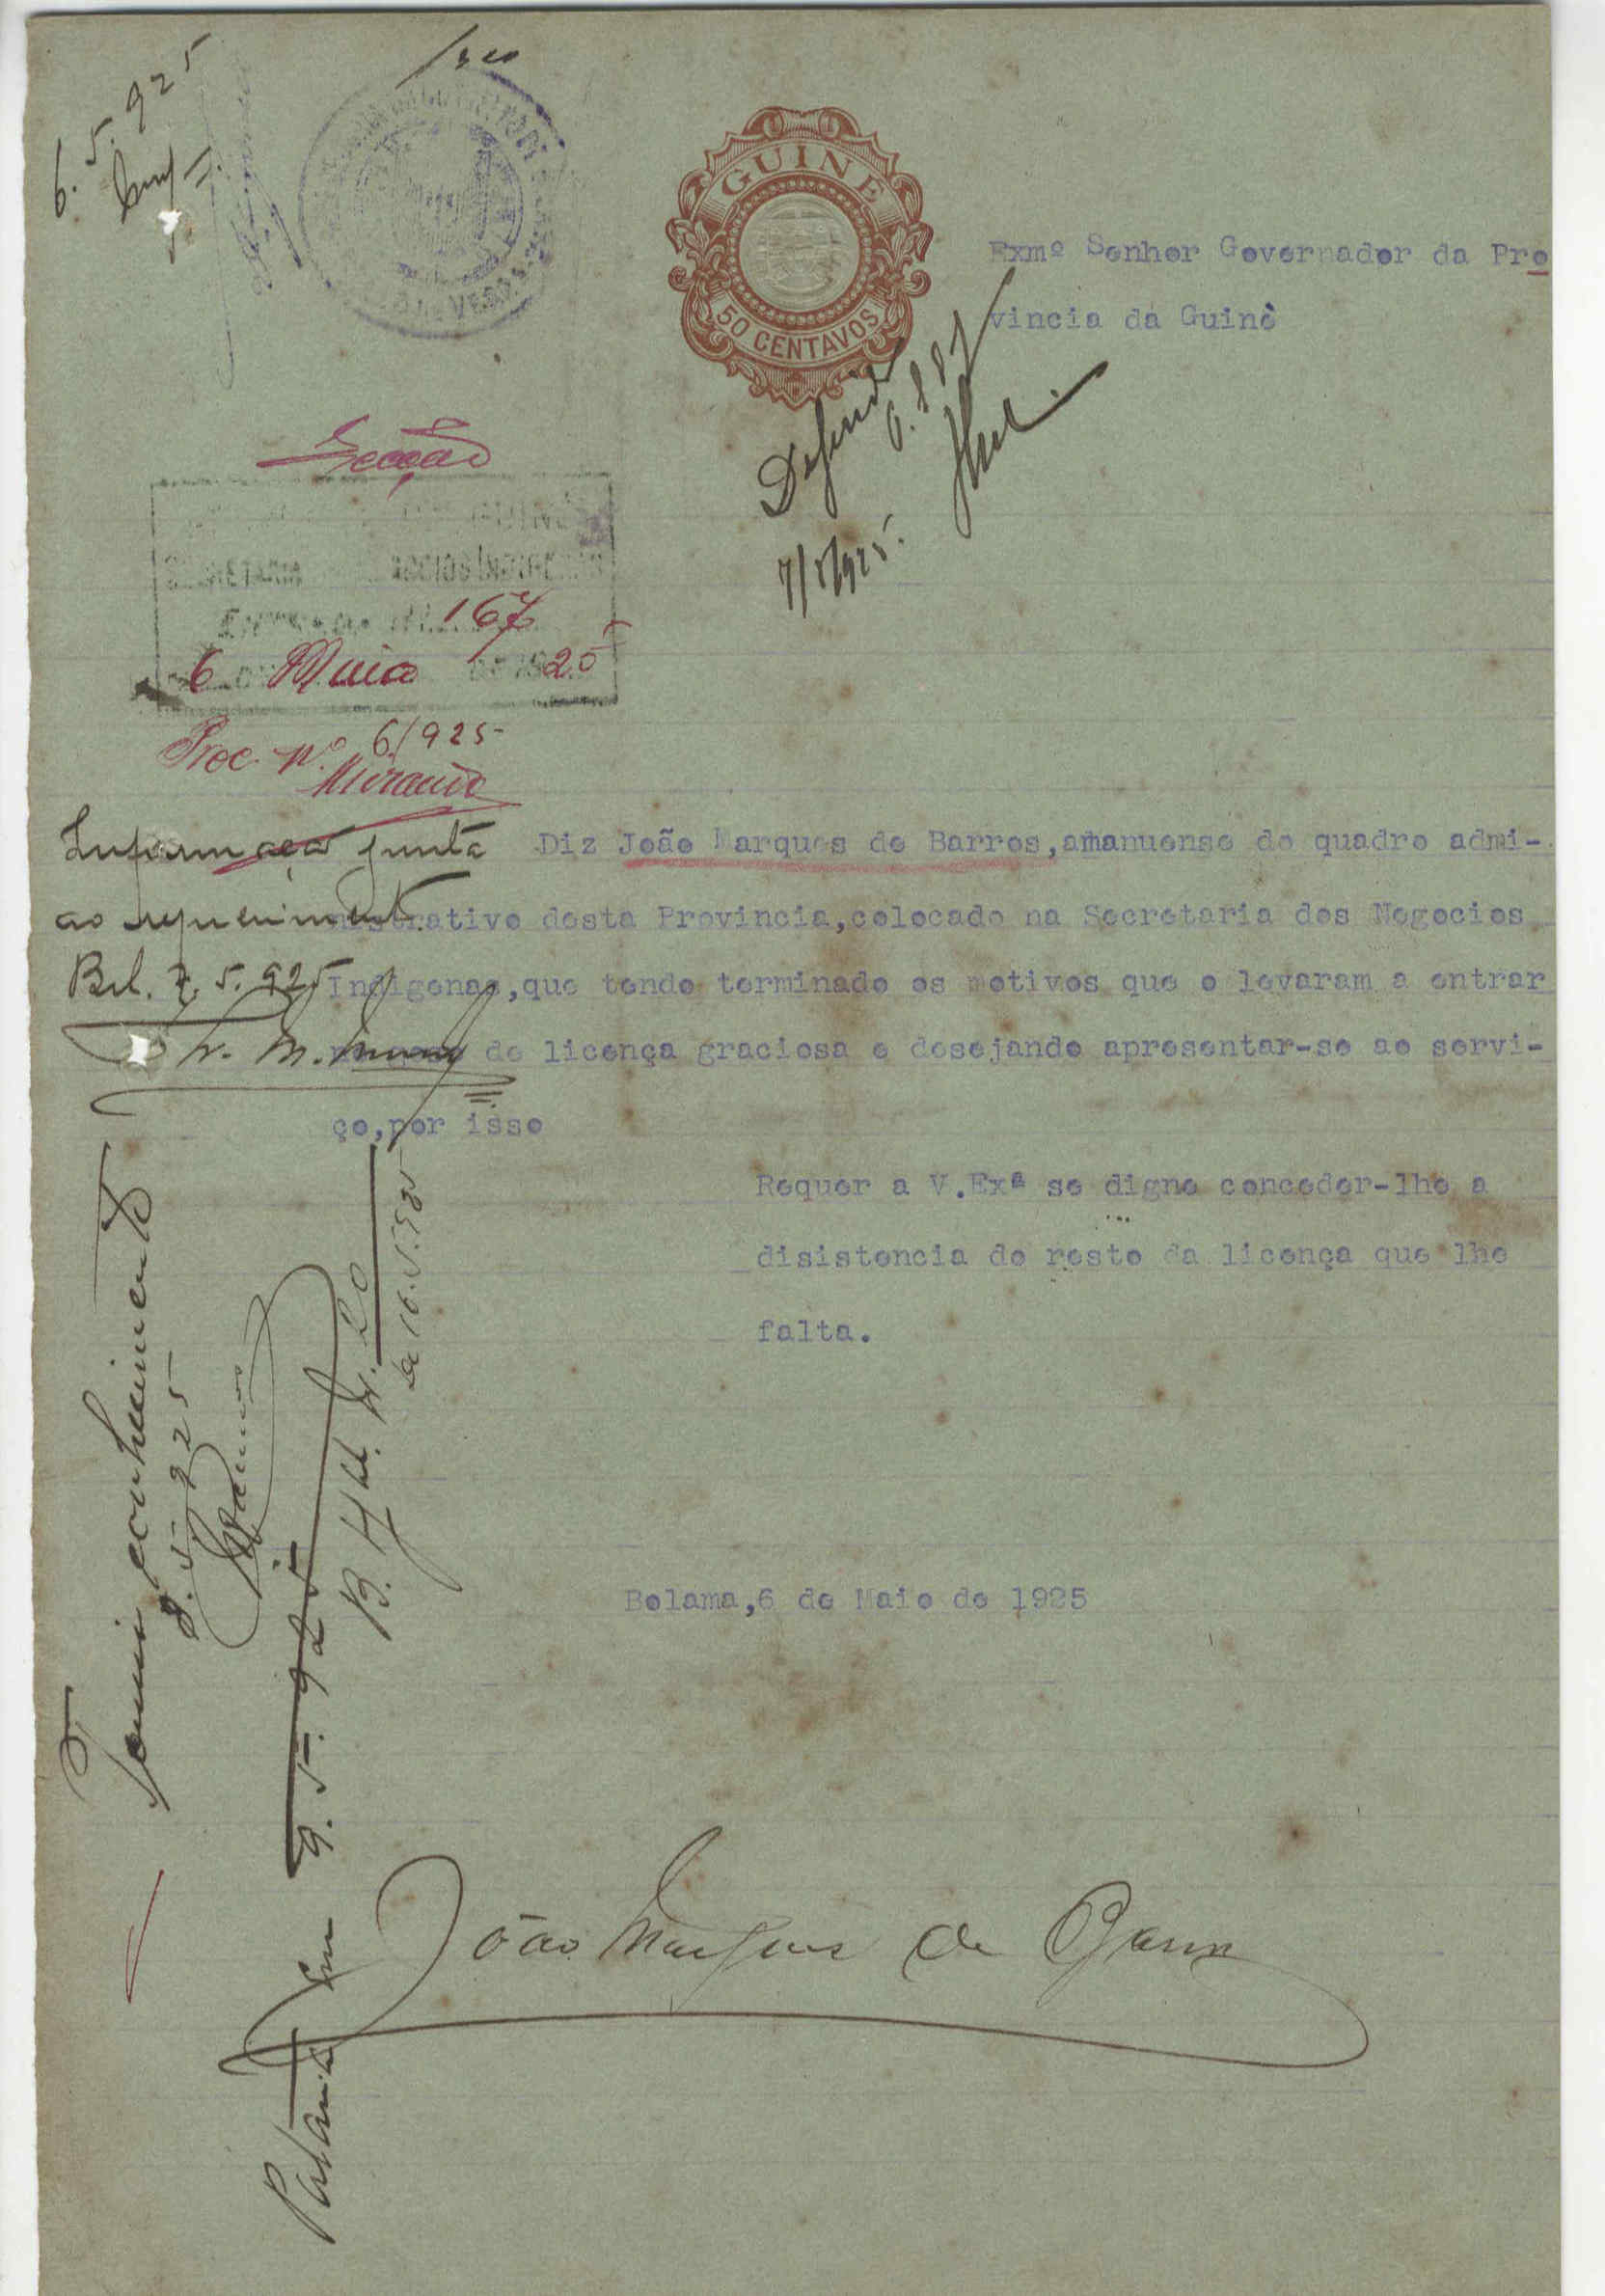 6.5.925
GUINÉ
50 CENTAVOS
Exmº Senhor Governador da Pro
vincia da Guinè
Secção
SECRETARIA NEGOCIOS INDIGENAS
167
6 Maio 25
Proc. nº 6/925
Deferido
7/5/925.
Informação junta
ao requerimento
Bol. 7.5.925
Diz João Marques de Barros,amanuense do quadro admi-
nistrativo desta Provincia,colocado na Secretaria dos Negocios
Indigenas,que tendo terminado os motivos que o levaram a entrar
de licença graciosa e desejando apresentar-se ao servi-
ço,por isso
Requer a V.Exª se digne conceder-lhe a
disistencia do resto da licença que lhe
falta.
Bolama,6 de Maio de 1925
João Marques de Barros
Tomei conhecimento
8.5.925
em 9.5.925
B. Off. N. 20
de 16.5.925